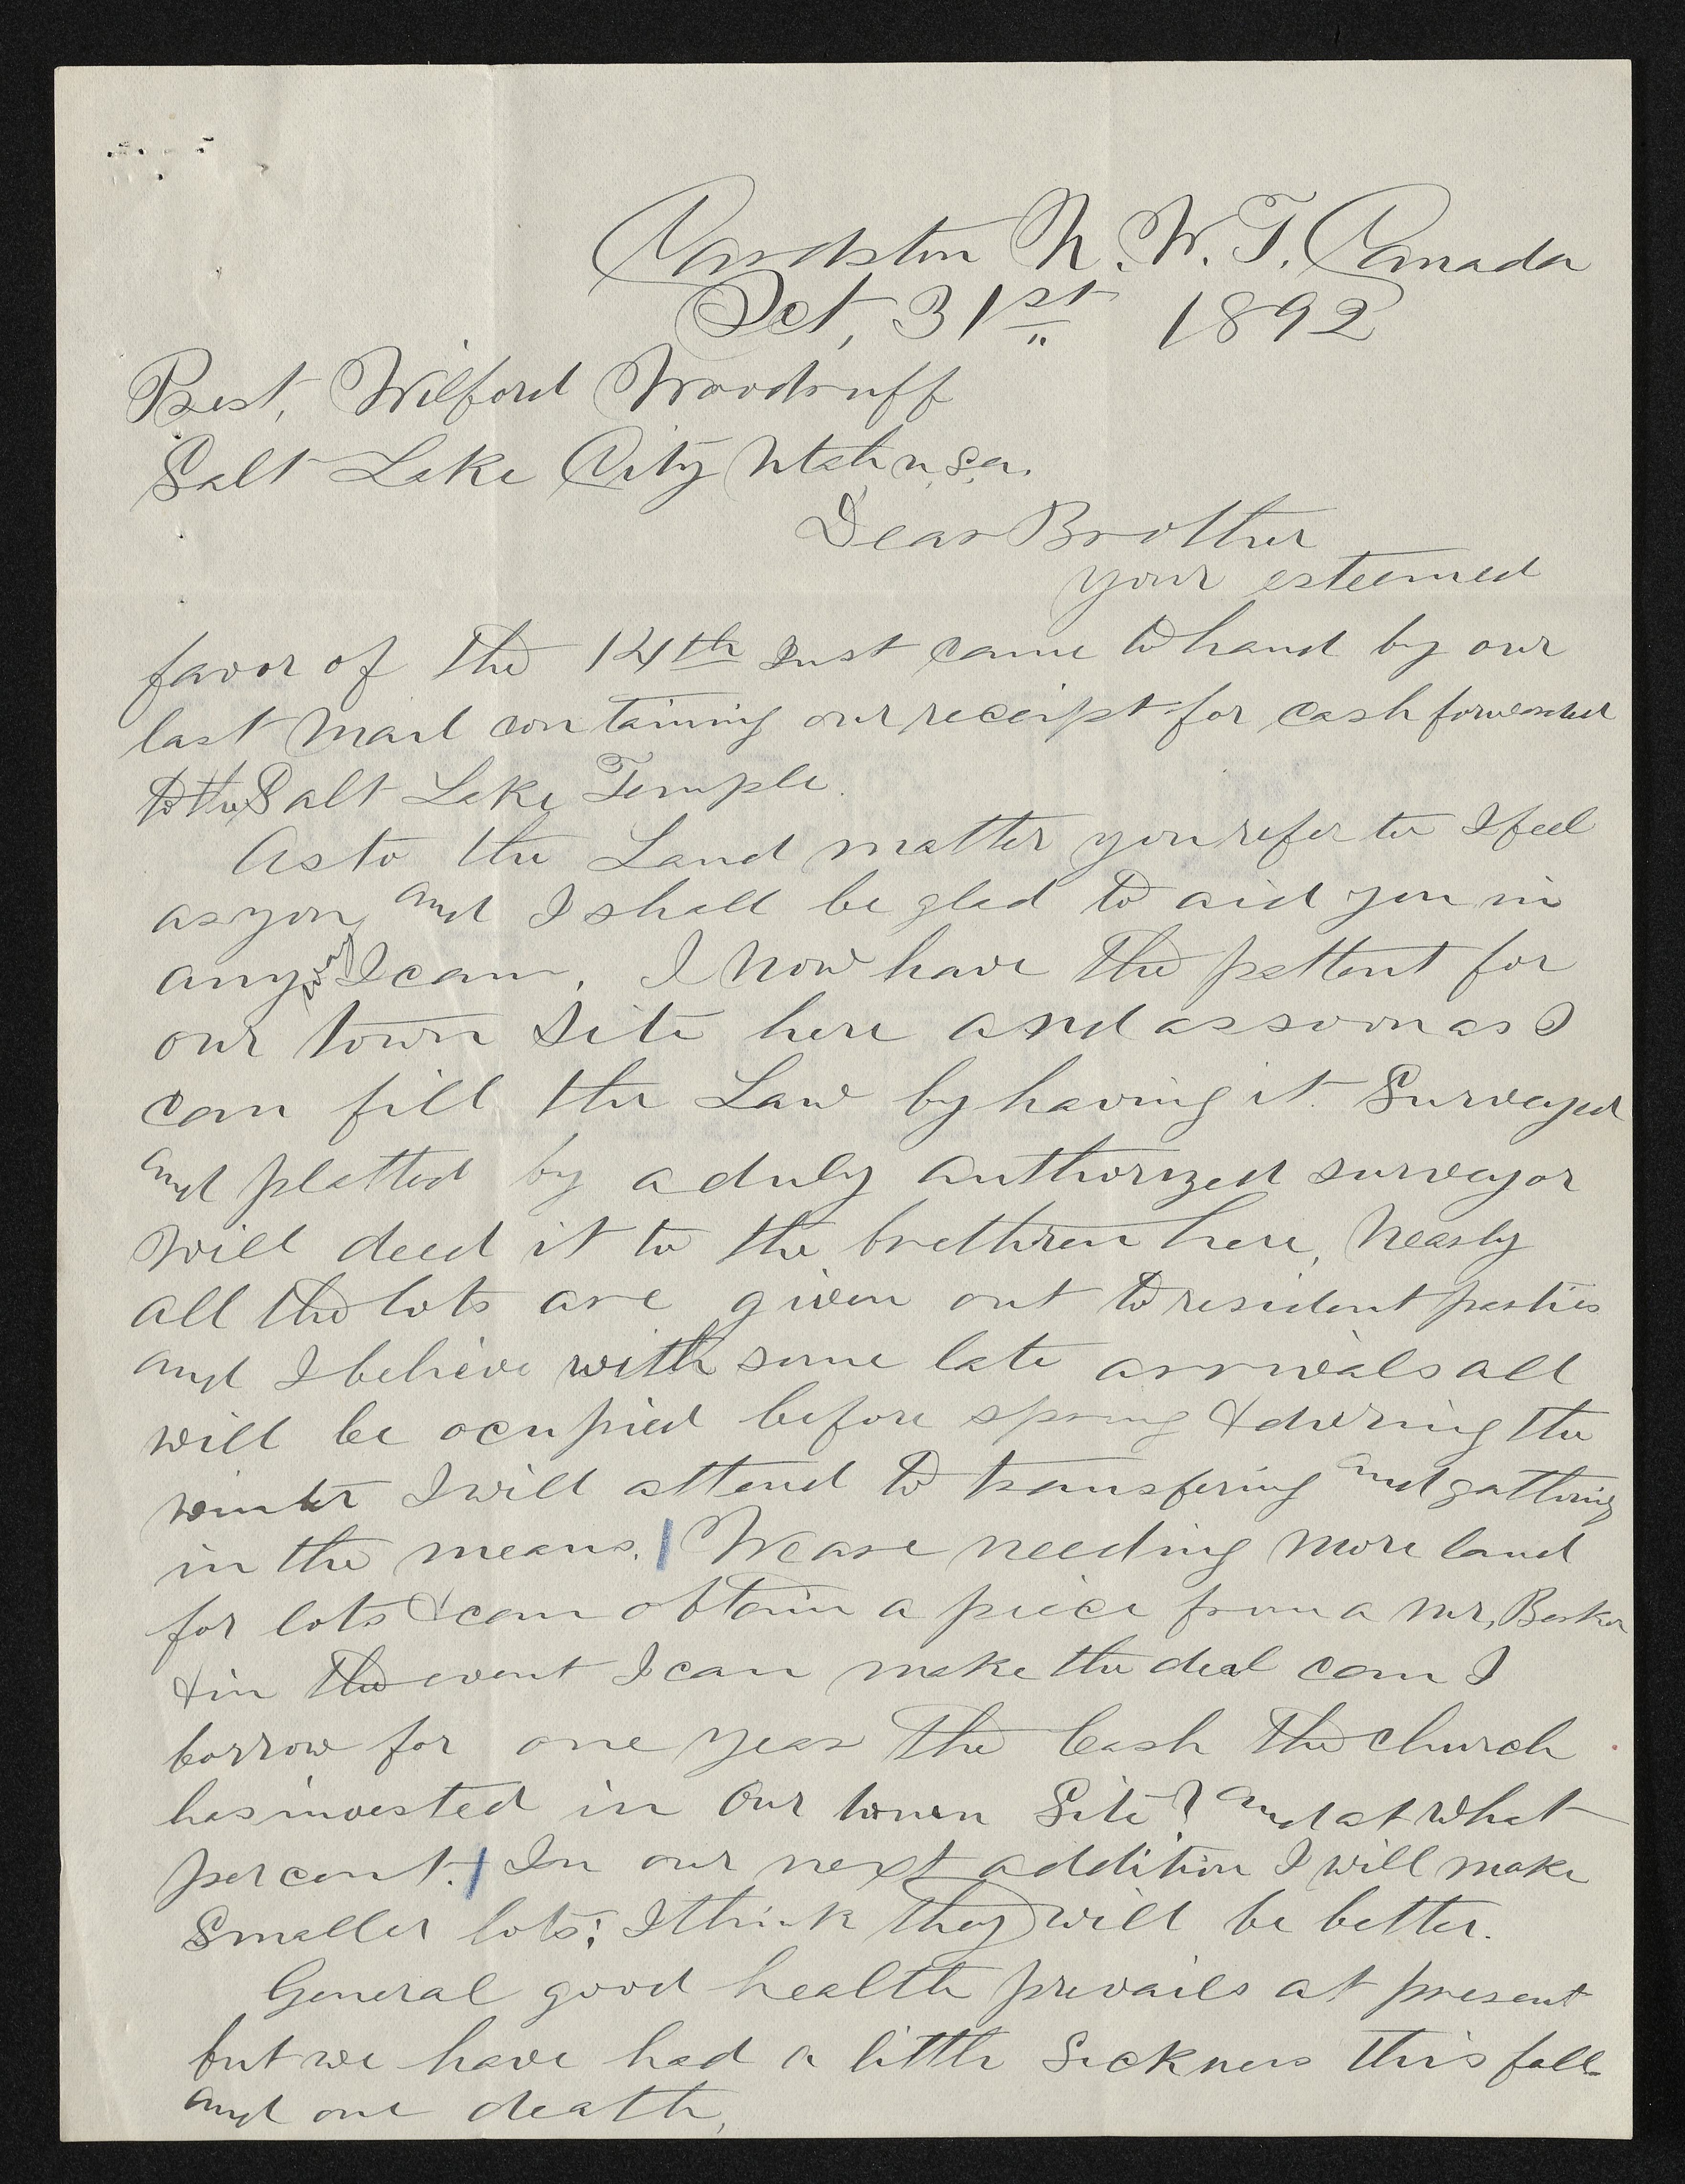 Cardston N. W. T. Canada
Oct, 31st 1892
Prest, Wilford Woodruff
Salt Lake City Utah U.S.a.
Dear Brother
your esteemed
favor of the 14th Inst came to hand by our
last mail containing our receipt for cash forwarded
to the Salt Lake Temple.
As to the Land matter you refer to I feel
as you, and I shall be glad to aid you in
any way I can. I now have the pattent for
our town Site here and as soon as I
can fill the Law by having it Surveyed
and platted by a duly authorized surveyor
will deed it to the brethren here, Nearly
all the lots are given out to resident parties
and I believe with some late arrivals all
will be ocupied before spring & during the
winter I will attend to transfering and gathring
in the means. | We are needing more land
for lots & can obtain a piece from a Mr, Barker
& in the event I can make the deal can I
borrow for one year the Cash the church
has invested in our town Site? and at what
per cent.| In our next addition I will make
Smaller lots; I think they will be better.
General good health prevails at present
but we have had a little Sickness this fall
and one death,